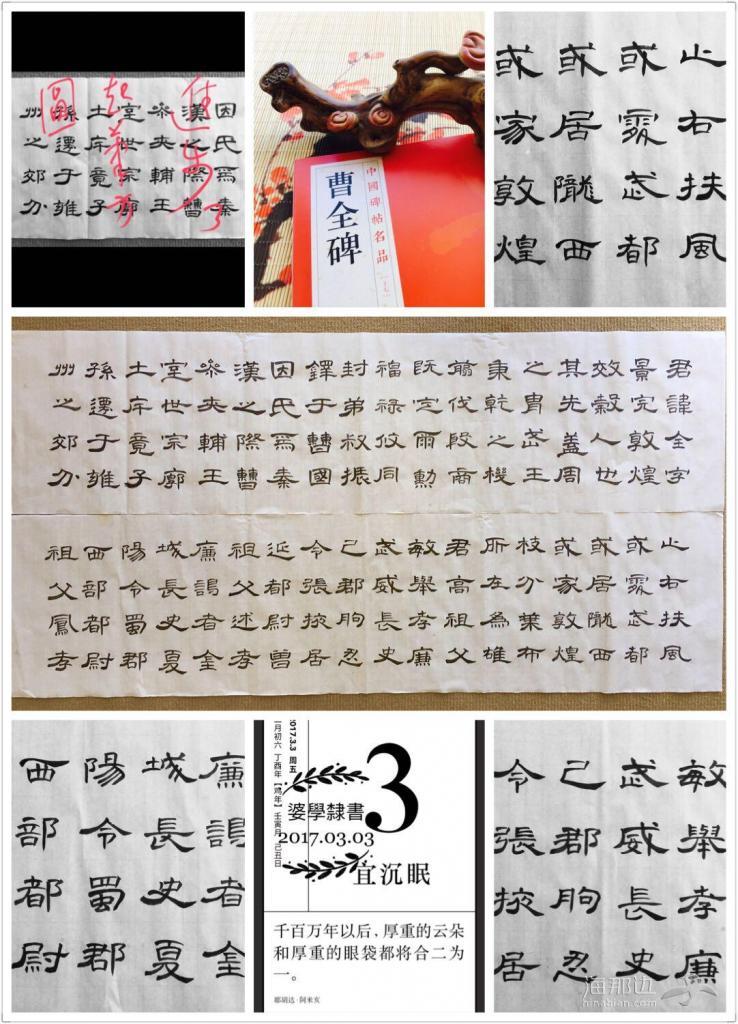 進步了
因氏焉秦
漢之際曹
參夾輔王
室世宗廓
土斥竟子
孫遷于雍
州之郊分
中國碑帖名品
曹全碑
止右扶風
或處武都
或居隴西
或家敦煌
君諱全字
景完敦煌
效穀人也
其先蓋周
之胄武王
秉乾之機
翦伐殷商
既定爾勳
福祿攸同
封弟叔振
鐸于曹國
因氏焉秦
漢之際曹
參夾輔王
室世宗廓
土斥竟子
孫遷于雍
州之郊分
止右扶風
或處武都
或居隴西
或家敦煌
枝分葉布
所在為雄
君高祖父
敏舉孝廉
武威長史
己郡朐忍
令張掖居
延都尉曾
祖父述孝
廉謁者金
城長史夏
陽令蜀郡
西部都尉
祖父鳳孝
廉謁者金
城長史夏
陽令蜀郡
西部都尉
2017.3.3 周五
月初六 丁酉年【鸡年】壬寅月 己五日
3
婆學隸書
2017.03.03
宜沉眠
千百万年以后，厚重的云朵
和厚重的眼袋都将合二为
一。
耶胡达·阿米亥
敏舉孝廉
武威長史
己郡朐忍
令張掖居
海那边
hinabian.com